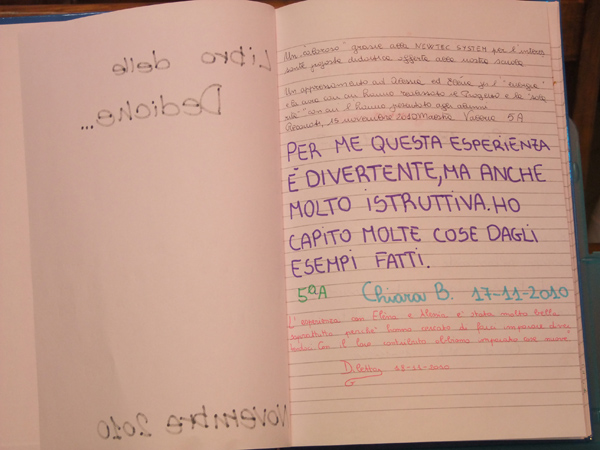 Libro delle
Dediche...
Novembre 2010
Un "caloroso" grazie alla NEWTEC SYSTEM per l'interes
sante proposta didattica offerta alla nostra scuola.
Un ringraziamento ad Alessia ed Elena per l'"energia"
con cui hanno
con cui l'hanno agli alunni
15 novembre 2010 Maestra Valeria 5A
PER ME QUESTA ESPERIENZA
È DIVERTENTE, MA ANCHE
MOLTO ISTRUTTIVA. HO
CAPITO MOLTE COSE DAGLI
ESEMPI FATTI.
5ªA Chiara B. 17-11-2010
L'esperienza con Elena e Alessia è stata molto bella
soprattutto perché hanno cercato di farci imparare
Con il loro contributo abbiamo imparato cose nuove
Diletta 18-11-2010
G